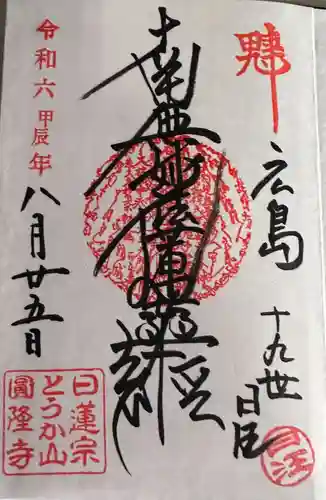 広島
十九世
南無妙法蓮華経
令和六甲辰年
八月廿五日
日蓮宗
とうか山
圓隆寺